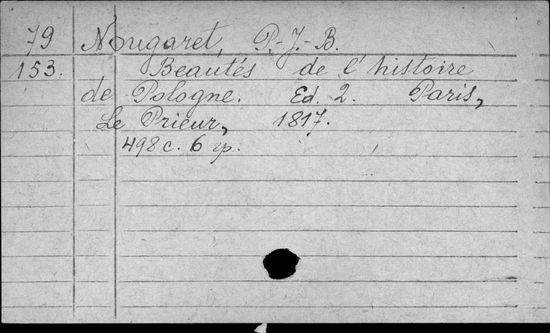 79 Nougaret, P.-J.-B.
153. Beautés de l'histoire
de Pologne. Ed. 2. Paris,
Le Prieur, 1817.
498 c. 6 гр.